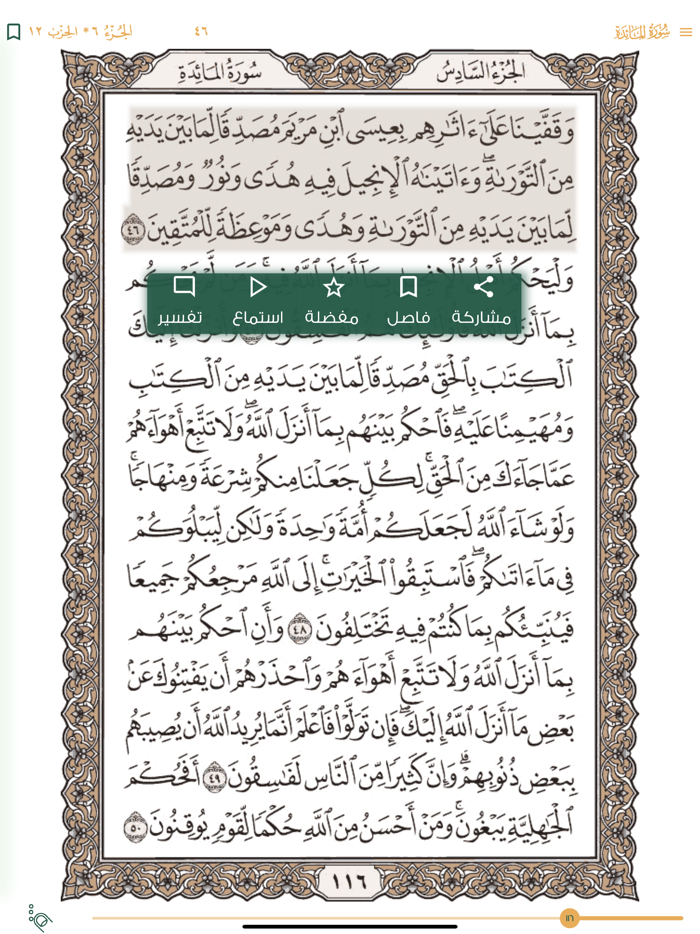 سُورَةُ المَائِدَةِ
٤٦
الجُزْءُ ٦ * الحِزْبُ ١٢
الجُزْءُ السَّادِسُ
سُورَةُ المَائِدَةِ
وَقَفَّيْنَا عَلَىٰٓ ءَاثَٰرِهِم بِعِيسَى ٱبْنِ مَرْيَمَ مُصَدِّقًا لِّمَا بَيْنَ يَدَيْهِ
مِنَ ٱلتَّوْرَىٰةِۖ وَءَاتَيْنَٰهُ ٱلْإِنجِيلَ فِيهِ هُدًى وَنُورٌ وَمُصَدِّقًا
لِّمَا بَيْنَ يَدَيْهِ مِنَ ٱلتَّوْرَىٰةِ وَهُدًى وَمَوْعِظَةً لِّلْمُتَّقِينَ ٤٦
وَلْيَحْكُمْ
مشاركة
فاصل
مفضلة
استماع
تفسير
بِمَآ أَنزَلَ
ٱلْكِتَٰبَ بِٱلْحَقِّ مُصَدِّقًا لِّمَا بَيْنَ يَدَيْهِ مِنَ ٱلْكِتَٰبِ
وَمُهَيْمِنًا عَلَيْهِۖ فَٱحْكُم بَيْنَهُم بِمَآ أَنزَلَ ٱللَّهُۖ وَلَا تَتَّبِعْ أَهْوَآءَهُمْ
عَمَّا جَآءَكَ مِنَ ٱلْحَقِّۚ لِكُلٍّ جَعَلْنَا مِنكُمْ شِرْعَةً وَمِنْهَاجًاۚ
وَلَوْ شَآءَ ٱللَّهُ لَجَعَلَكُمْ أُمَّةً وَٰحِدَةً وَلَٰكِن لِّيَبْلُوَكُمْ
فِى مَآ ءَاتَىٰكُمْۖ فَٱسْتَبِقُوا۟ ٱلْخَيْرَٰتِۚ إِلَى ٱللَّهِ مَرْجِعُكُمْ جَمِيعًا
فَيُنَبِّئُكُم بِمَا كُنتُمْ فِيهِ تَخْتَلِفُونَ ٤٨ وَأَنِ ٱحْكُم بَيْنَهُم
بِمَآ أَنزَلَ ٱللَّهُ وَلَا تَتَّبِعْ أَهْوَآءَهُمْ وَٱحْذَرْهُمْ أَن يَفْتِنُوكَ عَنۢ
بَعْضِ مَآ أَنزَلَ ٱللَّهُ إِلَيْكَۖ فَإِن تَوَلَّوْا۟ فَٱعْلَمْ أَنَّمَا يُرِيدُ ٱللَّهُ أَن يُصِيبَهُم
بِبَعْضِ ذُنُوبِهِمْۗ وَإِنَّ كَثِيرًا مِّنَ ٱلنَّاسِ لَفَٰسِقُونَ ٤٩ أَفَحُكْمَ
ٱلْجَٰهِلِيَّةِ يَبْغُونَۚ وَمَنْ أَحْسَنُ مِنَ ٱللَّهِ حُكْمًا لِّقَوْمٍ يُوقِنُونَ ٥٠
١١٦
١١٦